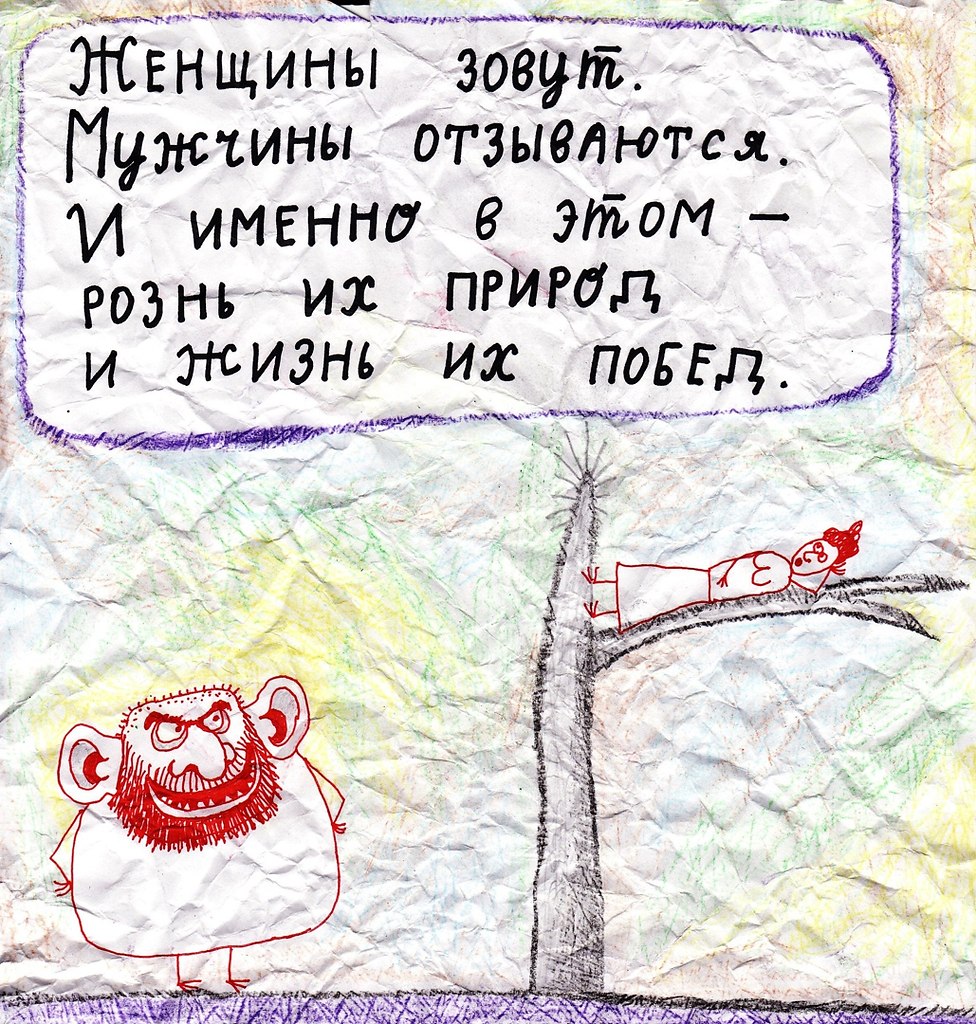 Женщины зовут.
Мужчины отзываются.
И именно в этом –
рознь их природ
и жизнь их побед.